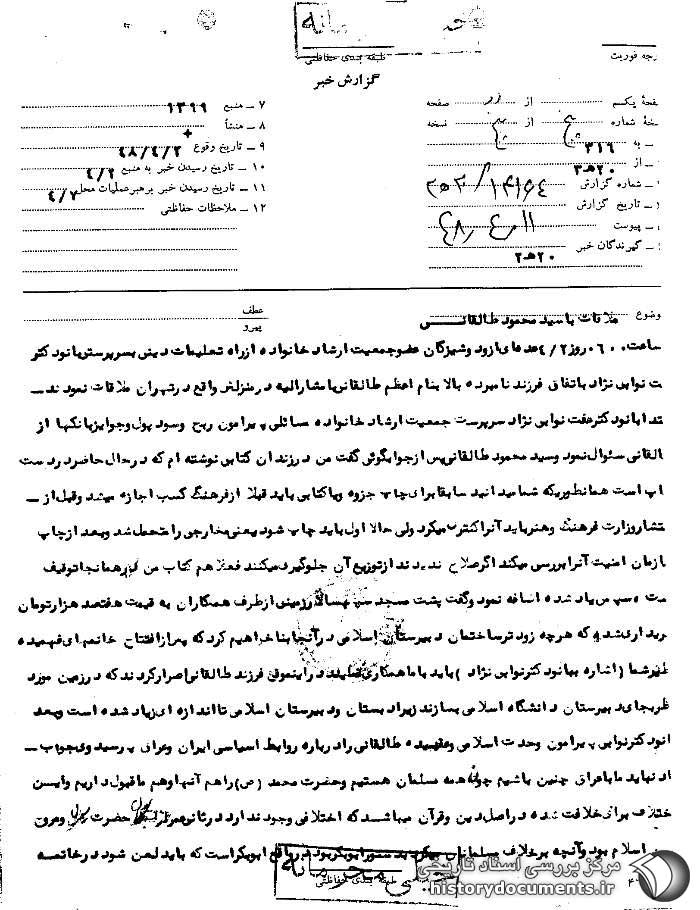 محرمانه
طبقه بندی حفاظتی
رجه فوریت
گزارش خبر
فحهٔ یکم از صفحه
خهٔ شماره از نسخه
ـ به ۳۱۶
ـ از ۲۰هـ۳
ـ شماره گزارش
ـ تاریخ گزارش ۴۸،۴،۱۱
ـ پیوست
ـ گیرندگان خبر
۲۰هـ۲
۷ ـ منبع ۱۳۹۹
۸ ـ منشأ
۹ ـ تاریخ وقوع ۴۸/۴/۲
۱۰ ـ تاریخ رسیدن خبر به منبع ۴/۲
۱۱ ـ تاریخ رسیدن خبر برهبر عملیات محل ۴/۷
۱۲ ـ ملاحظات حفاظتی
وضوع ملاقات با سید محمود طالقانی
عطف
پیرو
ساعت ۰۶۰۰ روز ۴/۲ عده‌ای از دوشیزگان عضو جمعیت ارشاد خانواده از راه تعلیمات دینی بسرپرستی بانو دکتر
ت نوابی نژاد باتفاق فرزند نامبرده بالا بنام اعظم طالقانی با مشارالیه در منزلش واقع در تهران ملاقات نمودند ـ
تدا بانو دکتر عفت نوابی نژاد سرپرست جمعیت ارشاد خانواده مسائلی پیرامون ربح و سود پول و جوایز بانکها از
القانی سئوال نمود و سید محمود طالقانی پس از جوابگوئی گفت من در زندان کتابی نوشته ام که در حال حاضر در دست
اپ است همانطوریکه شما میدانید سابقا برای چاپ جزوه و یا کتابی باید قبلا از فرهنگ کسب اجازه میشد و قبل از ـ
تشار وزارت فرهنگ و هنر باید آنرا کنترل میکرد ولی حالا اول باید چاپ شود یعنی مخارجی را متحمل شد و بعد از چاپ
ازمان امنیت آنرا بررسی میکند اگر صلاح ندیدند از توزیع آن جلوگیری میکنند فعلا هم کتاب من همانجا توقیف
ست سپس یاد شده اضافه نمود و گفت پشت مسجد زمینی از طرف همکاران به قیمت هفتصد هزار تومان
ریداری شده که هر چه زودتر ساختمان دبیرستان اسلامی در آنجا بنا خواهیم کرد که پس از افتتاح خانمهای فهمیده
نظیر شما (اشاره ببانو دکتر نوابی نژاد) باید با ما همکاری نمایند در اینموقع فرزند طالقانی اصرار کردند که در زمین مورد
ظر بجای دبیرستان دانشگاه اسلامی بسازند زیرا دبستان و دبیرستان اسلامی تا اندازه ای زیاد شده است و بعد
انو دکتر نوابی پیرامون وحدت اسلامی و عقیده طالقانی را درباره روابط سیاسی ایران و عراق پرسید وی جواب ـ
اد نباید ما با عراق چنین باشیم چونکه همه مسلمان هستیم و حضرت محمد (ص) را هم آنها و هم ما قبول داریم و این
ختلاف برای خلافت شده در اصل دین و قرآن میباشد که اختلافی وجود ندارد در ثانی حضرت و عمر
اسلام بود و آنچه برخلاف مسلمانان میکرد بدستور ابوبکر بود در واقع ابوبکر است که باید لعن شود در خاتمه
طبقه بندی حفاظتی
محرمانه
مرکز بررسی اسناد تاریخی
historydocuments.ir